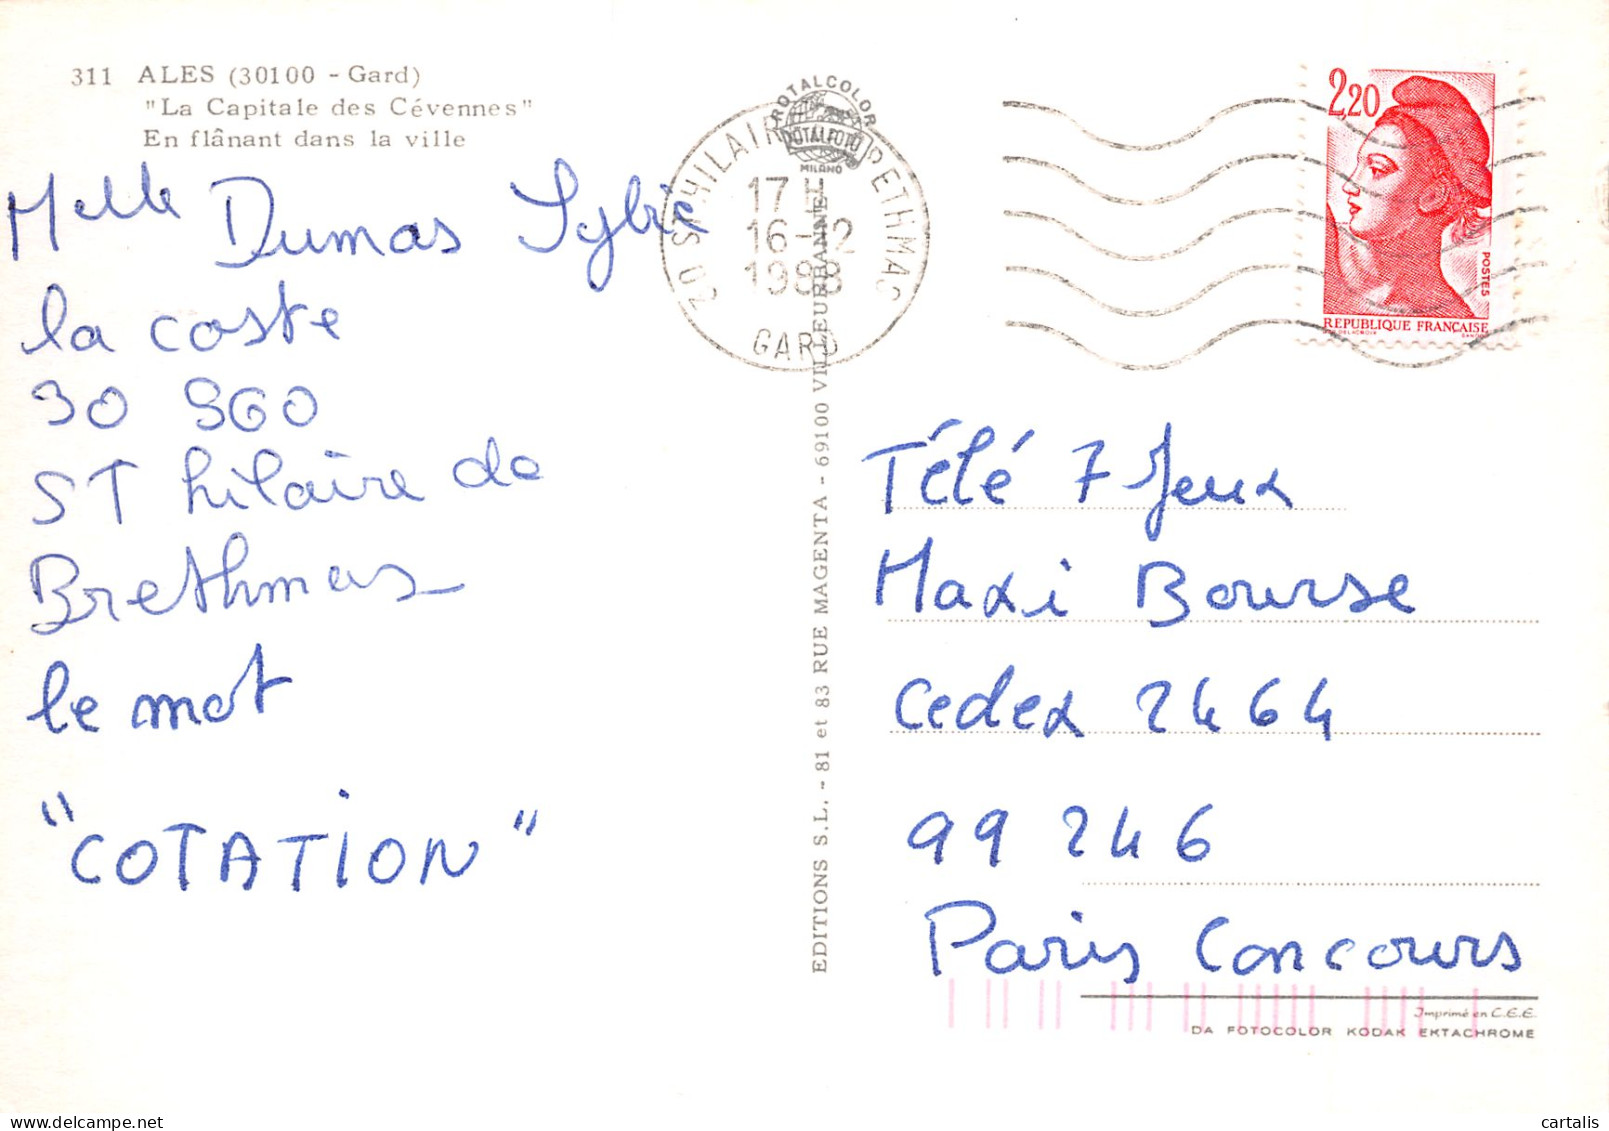 311 ALES (30100 - Gard)
"La Capitale des Cévennes"
En flânant dans la ville
Melle Dumas Sylvie
la coste
30 560
ST hilaire de
Brethmas
le mot
"COTATION"
ROTALCOLOR
ROTALFOTO
MILANO
20 ST HILAIRE BRETHMAS
17 H
16-12
1988
GARD
EDITIONS S.L. - 81 et 83 RUE MAGENTA - 69100 VILLEURBANNE
2,20
POSTES
REPUBLIQUE FRANCAISE
Télé 7 Jeux
Maxi Bourse
Cedex 2464
99 246
Paris Concours
Imprimé en C.E.E.
DA FOTOCOLOR KODAK EKTACHROME
cartalis
www.delcampe.net